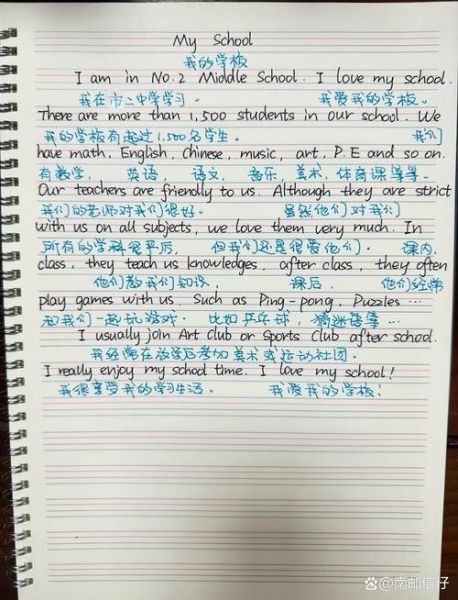 My School
我的学校
I am in No.2 Middle School. I love my school.
我在市二中学学习。 我爱我的学校。
There are more than 1,500 students in our school. We
我的学校有超过1,500名学生。 我们
have math, English, Chinese, music, art, P.E and so on.
有数学, 英语, 语文, 音乐, 美术, 体育课等等。
Our teachers are friendly to us. Although they are strict
我们的老师对我们很好。 虽然他们对我们
with us on all subjects, we love them very much. In
所有的学科很严厉, 但我们还是很爱他们。 课内,
class, they teach us knowledges, after class, they often
他们教我们知识, 课后, 他们经常
play games with us. Such as Ping-pong, Puzzles ...
和我们一起玩游戏。 比如乒乓球, 猜迷语等...
I usually join Art Club or Sports Club after school.
我经常在放学后参加美术或运动社团。
I really enjoy my school time. I love my school!
我很享受我的学习生活。 我爱我的学校!
@南邮信仔